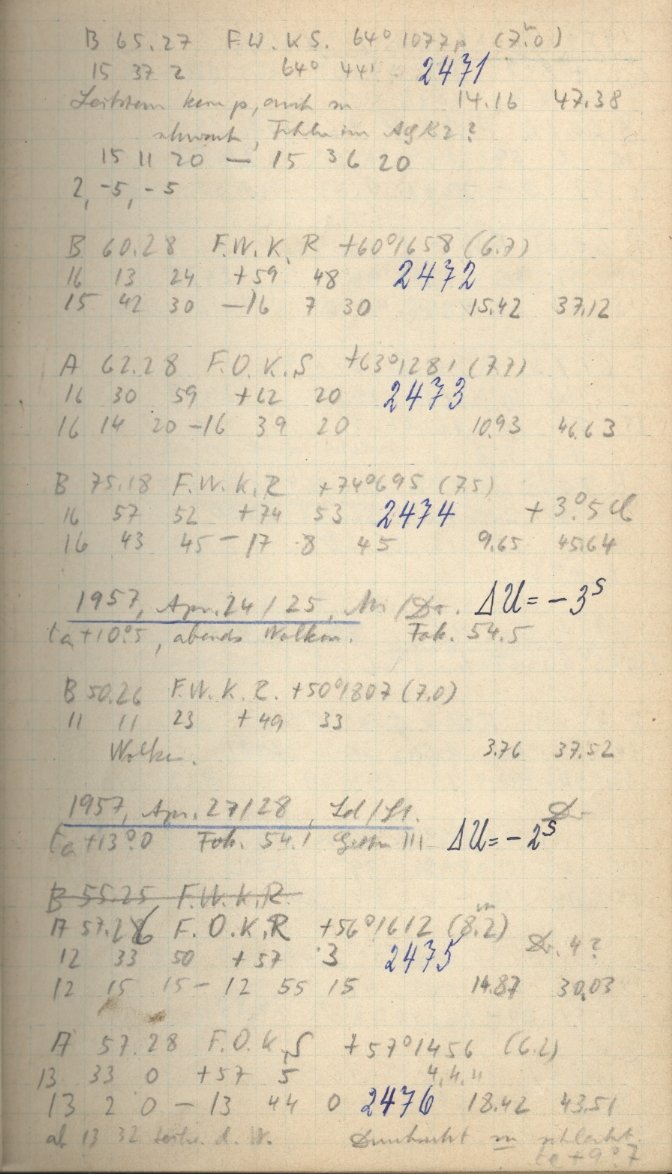 B 65.27 F.W.K.S. 64° 1077p (7.ᵐ0)
15 37 2 64° 44' 2471
Leitstern kem p, auch zu 14.16 47.38
schwach, Fehler im AGK2?
15 11 20 — 15 36 20
2, -5, -5
B 60.28 F.W.K.R +60°1658 (6.7)
16 13 24 +59 48 2472
15 42 30 — 16 7 30 15.42 37.12
A 62.28 F.O.K.S +63°1281 (7.7)
16 30 59 +62 20 2473
16 14 20 - 16 39 20 10.93 46.63
B 75.18 F.W.K.R +74°695 (7.5)
16 57 52 +74 53 2474 +3.°5
16 43 45 - 17 8 45 9.65 45.64
1957, Apr. 24/25, /Dr. ΔU = -3ˢ
ta +10.°5, abends Wolken. Fok. 54.5
B 50.26 F.W.K.R. +50°1807 (7.0)
11 11 23 +49 33
Wolken. 3.76 37.52
1957, Apr. 27/28, Ld/St. Dr
ta +13.°0 Fok. 54.1 III ΔU = -2ˢ
B 55.25 F.W.K.R.
A 57.26 F.O.K.R +56°1612 (8.ᵐ2)
12 33 50 +57 3 2475 Dr. 4?
12 15 15 - 12 55 15 14.87 30.03
A 57.28 F.O.K.S +57°1456 (6.2)
13 33 0 +57 5 4,4,11
13 2 0 - 13 44 0 2476 18.42 43.51
ab 13 32 d. W. Durchsicht zu schlecht.
ta +9°7